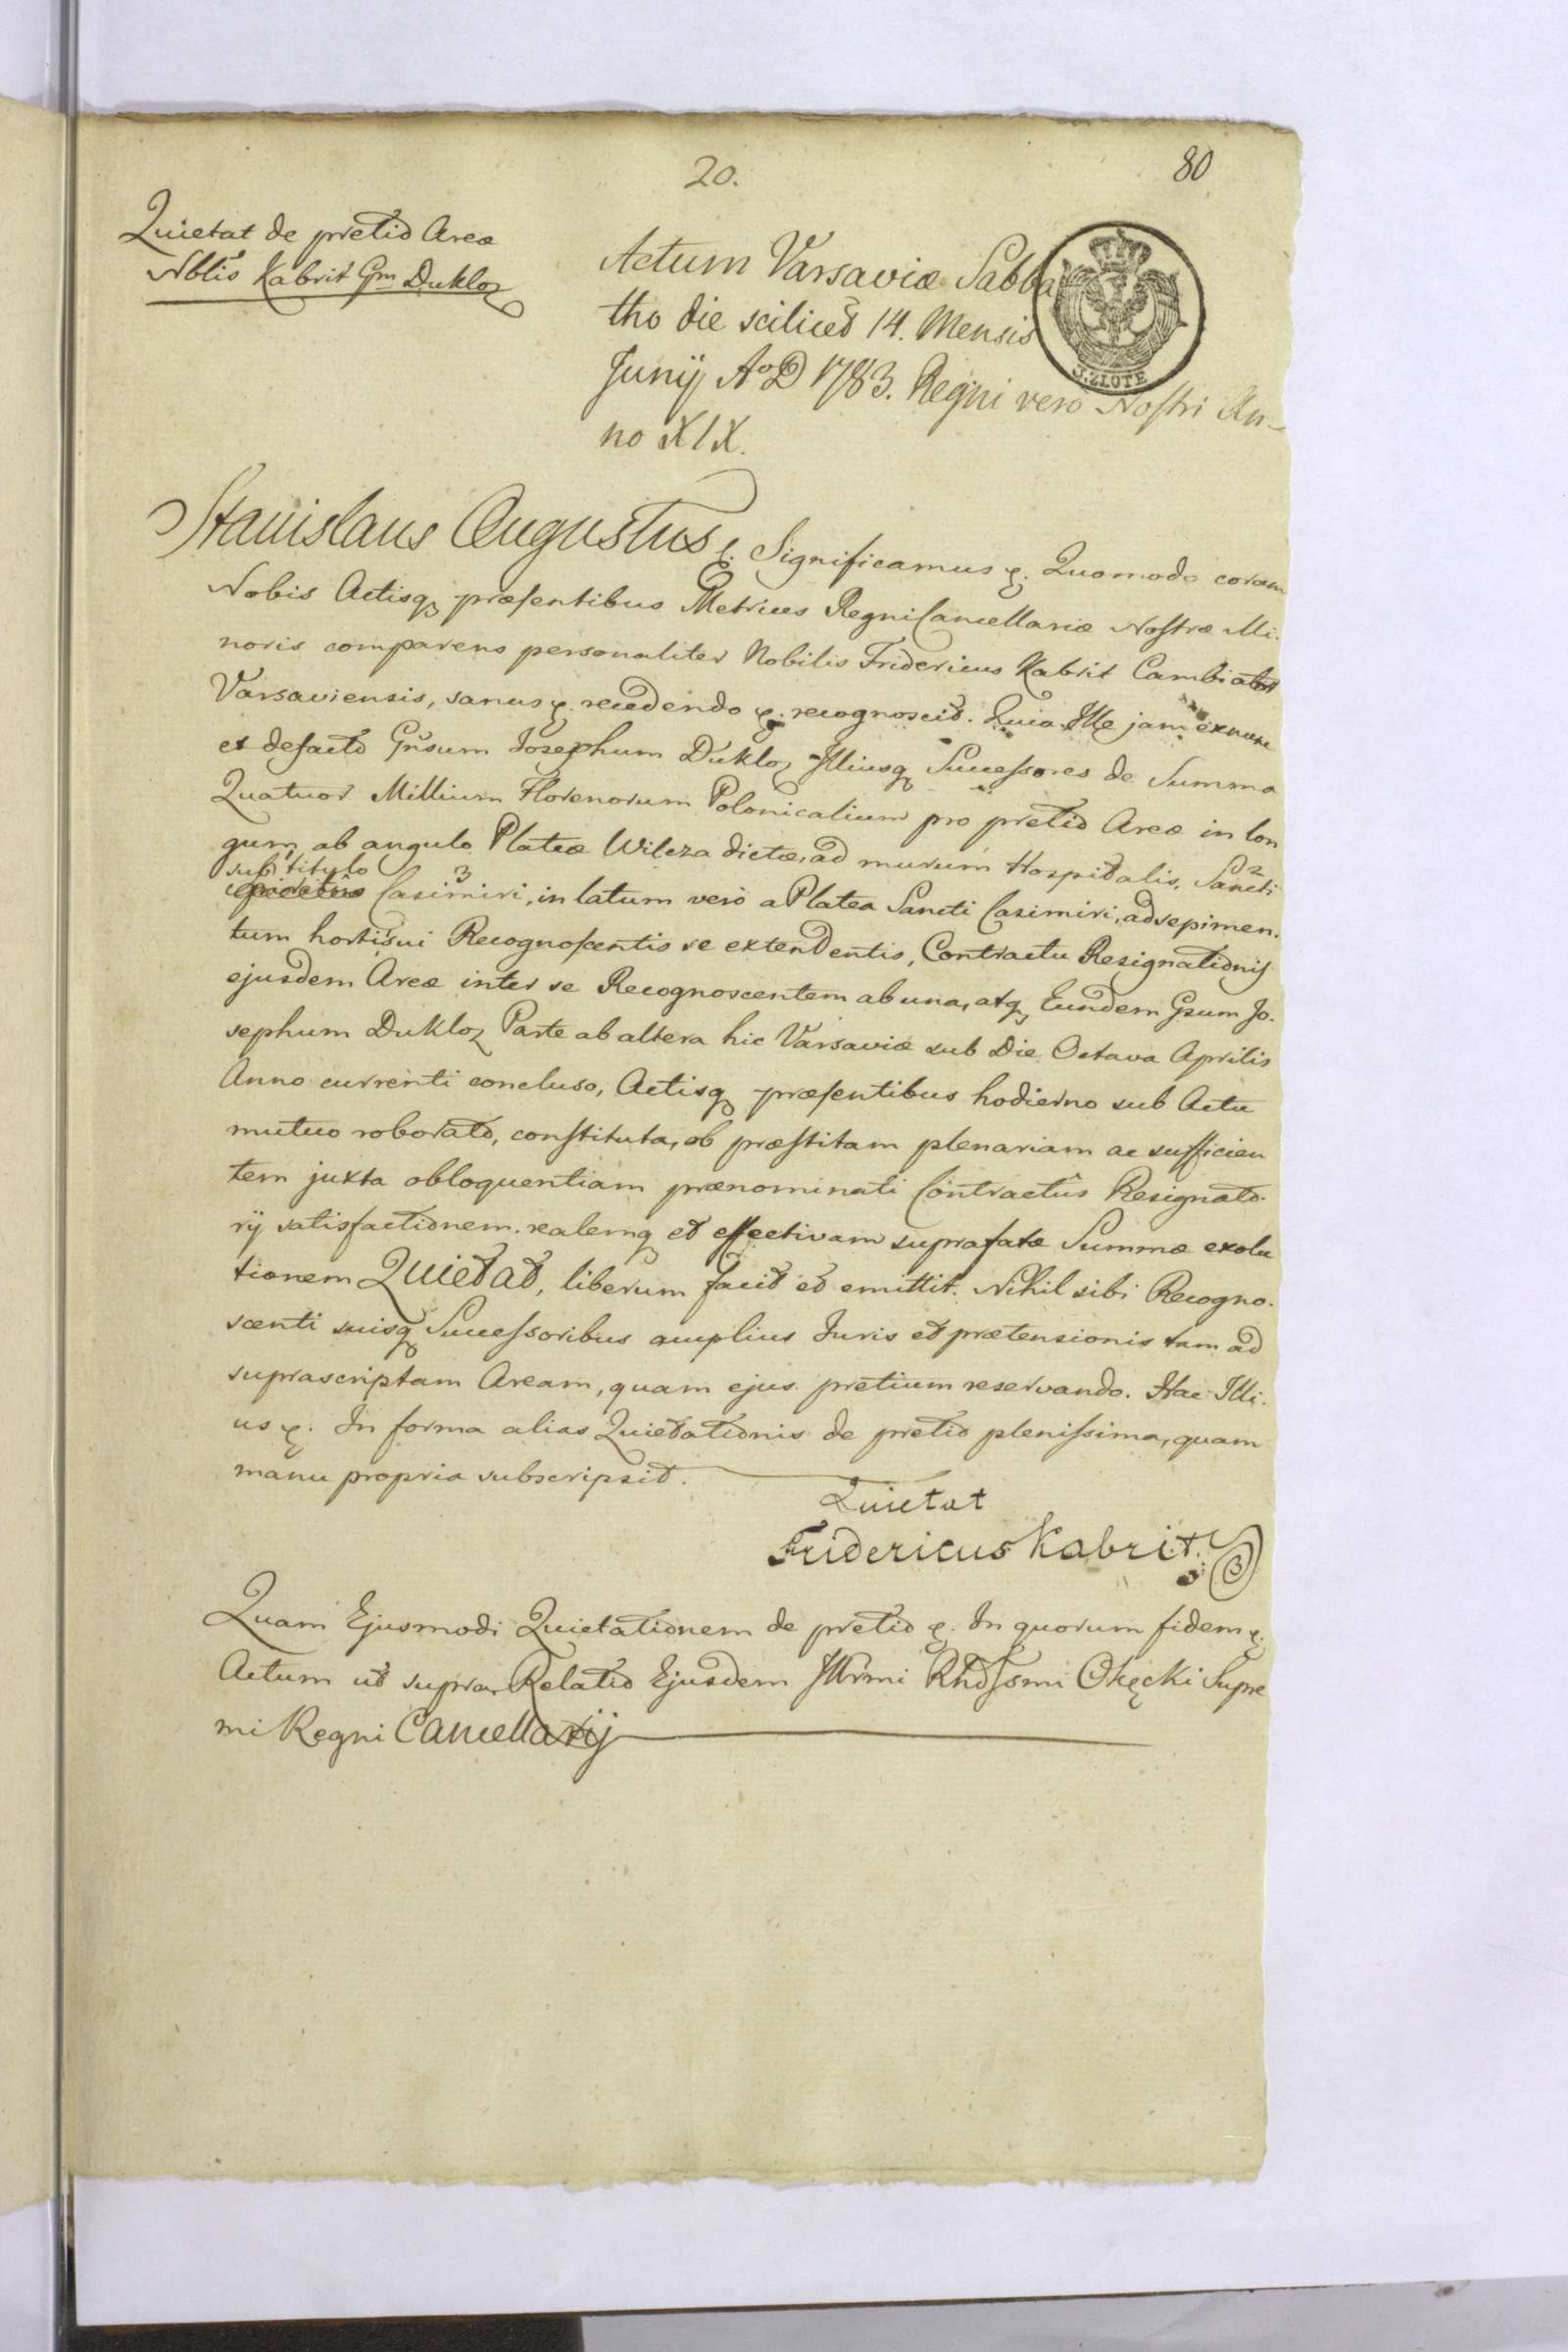 20.
80
Quietat de pretio Areæ
Nblis Kabrit Grm Dukloz
Actum Varsaviæ Sabba
tho die scilicet 14. Mensis
Junij Ao D 1783. Regni vero Nostri An-
no XIX.
3. ZŁOTE
Stanislaus Augustus Significamus Quomodo coram
Nobis Actisq præsentibus Metrices Regni Cancellariæ Nostræ Mi-
noris comparens personaliter Nobilis Fridericus Kabrit Cambiator
Varsaviensis, sanus recedendo recognoscit. Quia Ille jam exnunc
et defacto Grsum Josephum Dukloz Illiusq Successores de Summa
Quatuor Millium Florenorum Polonicalium pro pretio Areæ in lon
gum ab angulo Plateæ Wilcza dictæ, ad murum Hospitalis, Sancti 2
sub titulo
Casimiri, 3 in latum verò a Platea Sancti Casimiri, ad sepimen-
tum horti sui Recognoscentis se extendentis, Contractu Resignationis
ejusdem Areæ inter se Recognoscentem ab una, atq Eundem Gsum Jo-
sephum Dukloz Parte ab altera hic Varsaviæ sub Die Octava Aprilis
Anno currenti concluso, Actisq præsentibus hodierno sub Actu
mutuo roborato, constituta, ob præstitam plenariam ac sufficien
tem juxta obloquentiam prænominati Contractûs Resignato-
rij satisfactionem. realemq et effectivam suprafatæ Summæ exolu
tionem Quietat, liberum facit et emittit. Nihil sibi Recogno-
scenti suisq Successoribus amplius Juris et prætensionis tam ad
suprascriptam Aream, quam ejus pretium reservando. Hac Illi-
us In forma alias Quietationis de pretio plenissima, quam
manu propria subscripsit.
Quietat
Fridericus Kabrit.
Quam Ejusmodi Quietationem de pretio In quorum fidem
Actum ut supra, Relatio Ejusdem Illrmi Okęcki Supre
mi Regni Cancellarij